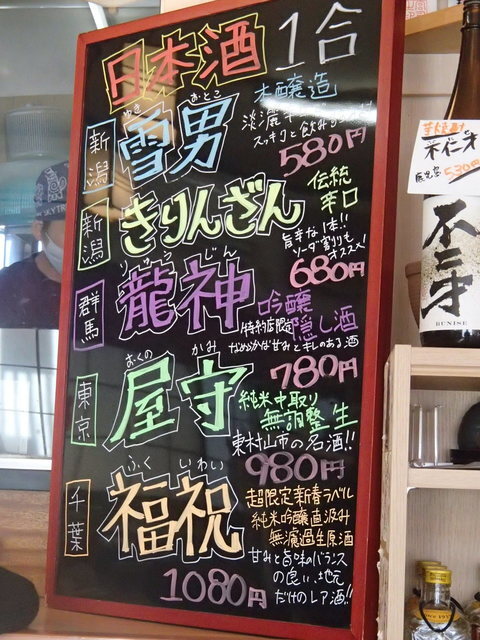 日本酒 1合
新潟
ゆき おとこ
雪男
本醸造
淡麗
スッキリと飲み
580円
新潟
きりんざん
伝統
辛口
旨辛な1本!!
ソーダ割りも
オススメ!
680円
群馬
りゅう じん
龍神
吟醸
隠し酒
特約店限定
なめらかな甘みとキレのある酒
780円
東京
おくの かみ
屋守
純米中取り
無調整生
東村山市の名酒!!
980円
千葉
ふく いわい
福祝
超限定新春ラベル
純米吟醸直汲み
無濾過生原酒
甘みと旨味のバランス
の良い、地元
だけのレア酒!!
1080円
不二才
530円
不二才
BUNISE